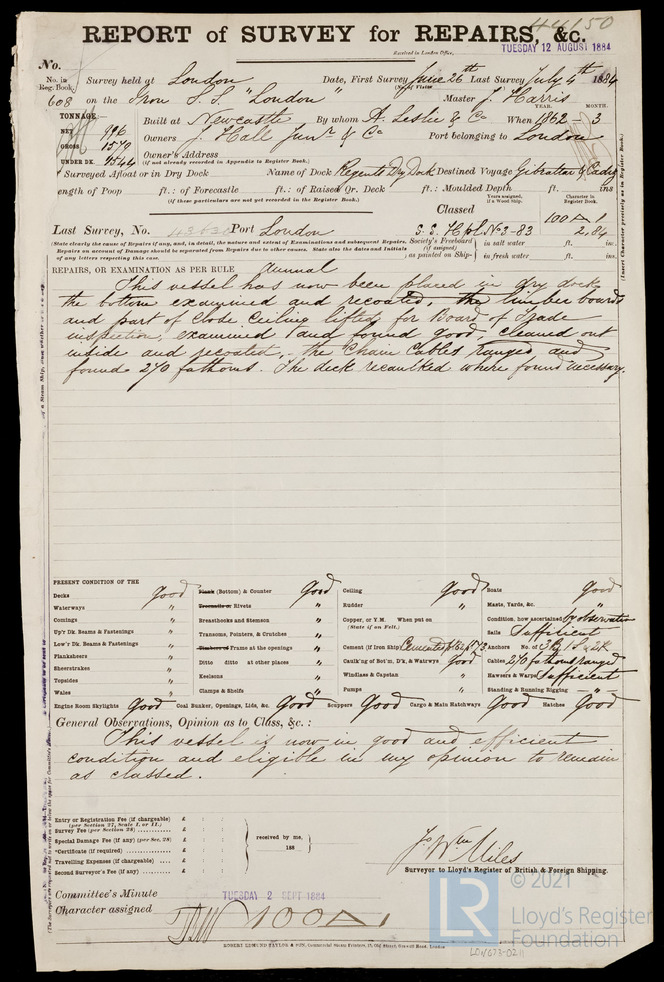 44150
REPORT of SURVEY for REPAIRS, &c.
Received in London Office,
TUESDAY 12 AUGUST 1884
No.
No. in Reg. Book. Survey held at London Date, First Survey June 26th Last Survey July 4th 1884
608 on the Iron S.S. "London" Master J. Harris
TONNAGE
YEAR. MONTH.
NET 996 Built at Newcastle By whom A. Leslie & Co When 1862 - 3
GROSS 1570 Owners J. Hall Junr & Co Port belonging to London
UNDER DK. Owner's Address
(If not already recorded in Appendix to Register Book.)
Surveyed Afloat or in Dry Dock Name of Dock Regents Dry Dock Destined Voyage Gibraltar & Cadiz
ength of Poop ft.: of Forecastle ft.: of Raised Qr. Deck ft.: Moulded Depth ft. ins
(If these particulars are not yet recorded in the Register Book.)
Years assigned, if a Wood Ship. Character in Register Book.
Classed 100A1
Last Survey, No. Port London S.S. Hpl. No 3-83 2.84
(State clearly the cause of Repairs (if any, and, in detail, the nature and extent of Examinations and subsequent Repairs.
Repairs on account of Damage should be separated from Repairs due to other causes. State also the dates and Initials
of any letters respecting this case.
Society's Freeboard (if assigned) as painted on Ship- in salt water ft. in.
in fresh water ft. in.
(Insert Character precisely as in Register Book.)
REPAIRS, OR EXAMINATION AS PER RULE Annual
This vessel has now been placed in dry dock
the bottom examined and recoated, the limber boards
and part of Close Ceiling lifted for Board of Trade
inspection, examined and found good, cleaned out
inside and recoated, the Chain Cables ranged and
found 270 fathoms. The deck recaulked where found necessary.
PRESENT CONDITION OF THE
Decks good
Waterways "
Comings "
Up'r Dk. Beams & Fastenings "
Low'r Dk. Beams & Fastenings "
Planksheers "
Sheerstrakes "
Topsides "
Wales "
Plank (Bottom) & Counter Good
Treenails or Rivets "
Breasthooks and Stemson "
Transoms, Pointers, & Crutches "
Timbers or Frame at the openings "
Ditto ditto at other places "
Keelsons "
Clamps & Shelfs "
Ceiling Good
Rudder "
Copper, or Y.M. When put on
(State if on Felt.)
Cement (if Iron Ship) Cemented
Caulk'ng of Bot'm, D'k, & Waterw'ys Good
Windlass & Capstan "
Pumps "
Boats Good
Masts, Yards, &c. "
Condition, how ascertained by observation
Sails Sufficient
Anchors No. of 3B, 1S, 2K
Cables 270 fathoms ranged
Hawsers & Warps Sufficient
Standing & Running Rigging - " -
Engine Room Skylights Good Coal Bunker, Openings, Lids, &c. Good Scuppers Good Cargo & Main Hatchways Good Hatches Good
General Observations, Opinion as to Class, &c.:
This vessel is now in good and efficient
condition and eligible in my opinion to remain
as classed.
Entry or Registration Fee (if chargeable) £
(per Section 27, Scale I. or II.)
Survey Fee (per Section 28) £
Special Damage Fee (if any) (per Sec. 28) £
*Certificate (if required) £
Travelling Expenses (if chargeable) £
Second Surveyor's Fee (if any) £
received by me,
188
Jo. Wm Miles
Surveyor to Lloyd's Register of British & Foreign Shipping.
Committee's Minute TUESDAY 2 SEPT 1884
Character assigned 100A1
ROBERT EDMUND TAYLOR & SON, Commercial Steam Printers, 19, Old Street, Goswell Road, London
LR
© 2021
Lloyd's Register
Foundation
LON673-0211